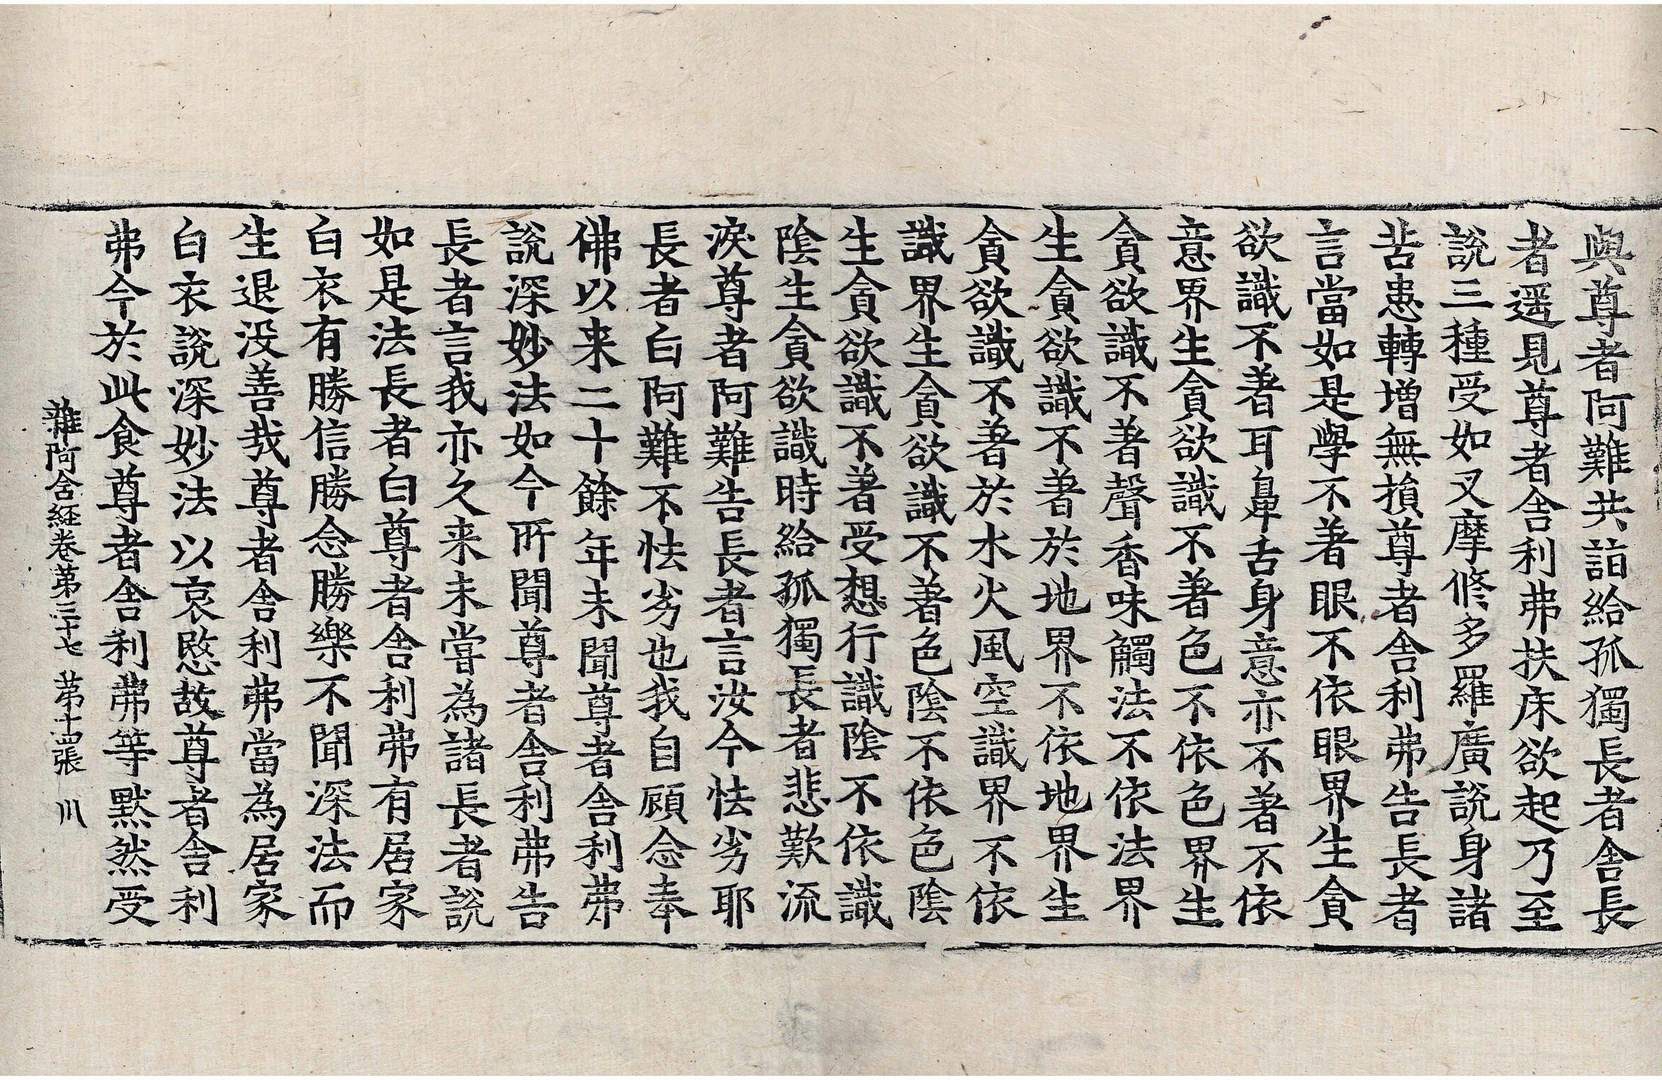 與尊者阿難共詣給孤獨長者舍長
者遥見尊者舍利弗扶床欲起乃至
說三種受如叉摩修多羅廣說身諸
苦患轉增無損尊者舍利弗告長者
言當如是學不著眼不依眼界生貪
欲識不著耳鼻舌身意亦不著不依
意界生貪欲識不著色不依色界生
貪欲識不著聲香味觸法不依法界
生貪欲識不著於地界不依地界生
貪欲識不著於水火風空識界不依
識界生貪欲識不著色陰不依色陰
生貪欲識不著受想行識陰不依識
陰生貪欲識時給孤獨長者悲歎流
淚尊者阿難告長者言汝今怯劣耶
長者白阿難不怯劣也我自顧念奉
佛以来二十餘年未聞尊者舍利弗
說深妙法如今所聞尊者舍利弗告
長者言我亦久来未嘗為諸長者說
如是法長者白尊者舍利弗有居家
白衣有勝信勝念勝樂不聞深法而
生退没善哉尊者舍利弗當為居家
白衣說深妙法以哀愍故尊者舍利
弗今於此食尊者舍利弗等默然受
雜阿含経卷第三十七 第十四張 川